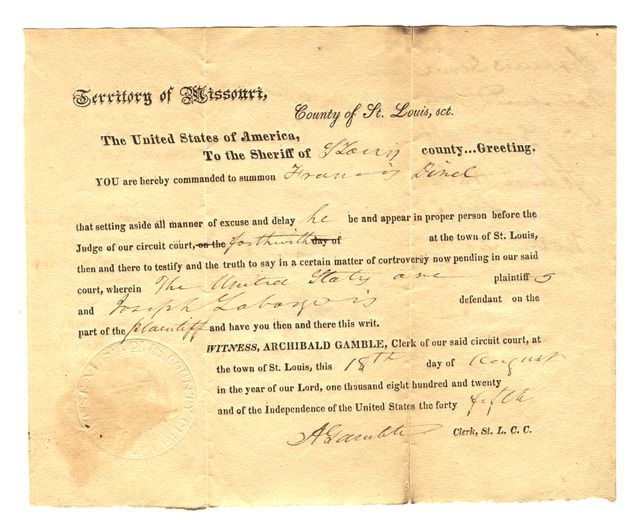 Territory of Missouri,
County of St. Louis, sct.
The United States of America,
To the Sheriff of St Louis county...Greeting.
YOU are hereby commanded to summon Francis
that setting aside all manner of excuse and delay he be and appear in proper person before the
Judge of our circuit court, on the forthwith day of at the town of St. Louis,
then and there to testify and the truth to say in a certain matter of cortroversy now pending in our said
court, wherein The United States are plaintiff s
and Joseph Labarge is defendant on the
part of the plaintiff and have you then and there this writ.
WITNESS, ARCHIBALD GAMBLE, Clerk of our said circuit court, at
the town of St. Louis, this 18th day of August
in the year of our Lord, one thousand eight hundred and twenty
and of the Independence of the United States the forty fifth
A Gamble Clerk, St. L. C. C.